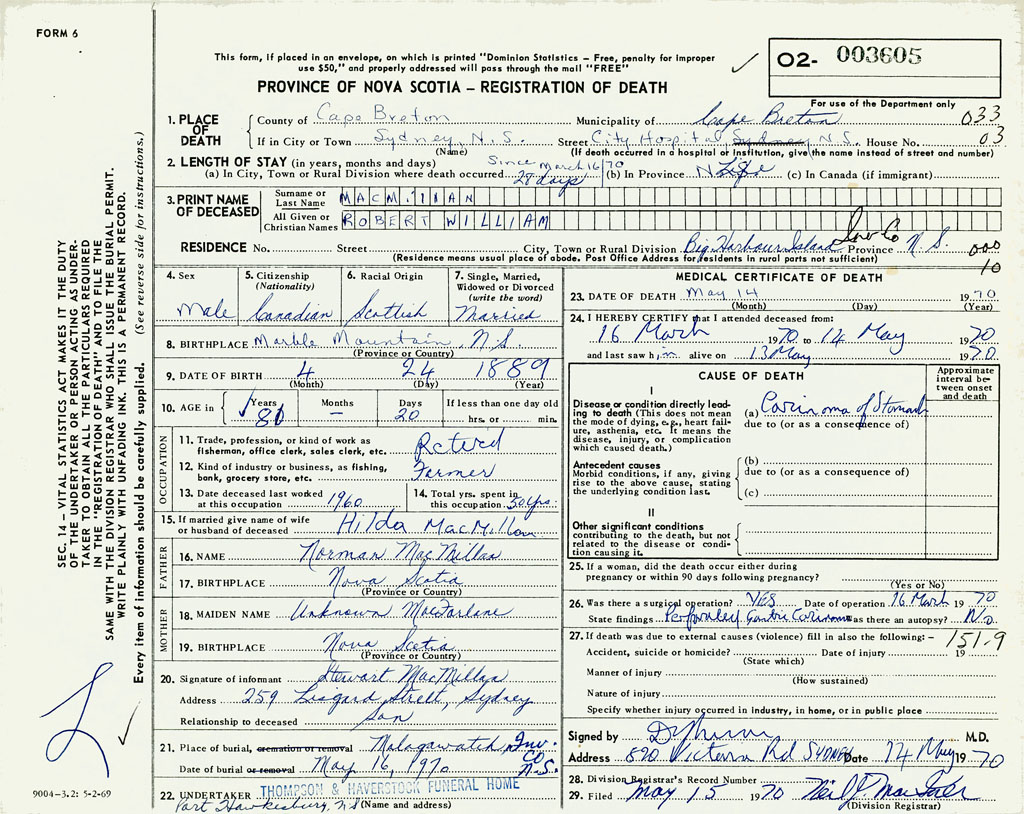 FORM 6
This form, if placed in an envelope, on which is printed "Dominion Statistics – Free, penalty for improper
use $50," and properly addressed will pass through the mail "FREE"
02- 003605
PROVINCE OF NOVA SCOTIA – REGISTRATION OF DEATH
For use of the Department only
1. PLACE OF DEATH
County of Cape Breton Municipality of Cape Breton 033
If in City or Town Sydney, N.S. Street City Hospital, Sydney N.S. House No. 03
(Name) (If death occurred in a hospital or institution, give the name instead of street and number)
2. LENGTH OF STAY (in years, months and days) Since March 16/70
(a) In City, Town or Rural Division where death occurred 28 days (b) In Province Life (c) In Canada (if immigrant)
3. PRINT NAME OF DECEASED
Surname or Last Name MACMILLAN
All Given or Christian Names ROBERT WILLIAM
RESIDENCE No. Street City, Town or Rural Division Big Harbour Island Inv Co Province N.S. 000
(Residence means usual place of abode. Post Office Address for residents in rural parts not sufficient) 10
4. Sex Male
5. Citizenship (Nationality) Canadian
6. Racial Origin Scottish
7. Single, Married, Widowed or Divorced (write the word) Married
8. BIRTHPLACE Marble Mountain, N.S.
(Province or Country)
9. DATE OF BIRTH 4 24 1889
(Month) (Day) (Year)
10. AGE in Years 81 Months – Days 20 If less than one day hrs. or min.
OCCUPATION
11. Trade, profession, or kind of work as fisherman, office clerk, sales clerk, etc. Retired
12. Kind of industry or business, as fishing, bank, grocery store, etc. Farmer
13. Date deceased last worked at this occupation 1960
14. Total yrs. spent in this occupation 50 yrs.
15. If married give name of wife or husband of deceased Hilda MacMillan
FATHER
16. NAME Norman MacMillan
17. BIRTHPLACE Nova Scotia
(Province or Country)
MOTHER
18. MAIDEN NAME Unknown MacFarlane
19. BIRTHPLACE Nova Scotia
(Province or Country)
20. Signature of informant Stewart MacMillan
Address 259 Lisgard Street, Sydney
Relationship to deceased Son
21. Place of burial, cremation or removal Malagawatch, Inv. Co N.S.
Date of burial or removal May 16, 1970
22. UNDERTAKER THOMPSON & HAVERSTOCK FUNERAL HOME
Port Hawkesbury, NS (Name and address)
MEDICAL CERTIFICATE OF DEATH
23. DATE OF DEATH May 14 1970
(Month) (Day) (Year)
24. I HEREBY CERTIFY that I attended deceased from:
16 March 1970 to 14 May 1970
and last saw him alive on 13 May 1970
CAUSE OF DEATH
Approximate interval between onset and death
I
Disease or condition directly leading to death (This does not mean the mode of dying, e.g., heart failure, asthenia, etc. It means the disease, injury, or complication which caused death.)
(a) Carcinoma of Stomach
due to (or as a consequence of)
Antecedent causes
Morbid conditions, if any, giving rise to the above cause, stating the underlying condition last.
(b)
due to (or as a consequence of)
(c)
II
Other significant conditions
contributing to the death, but not related to the disease or condition causing it.
25. If a woman, did the death occur either during pregnancy or within 90 days following pregnancy?
(Yes or No)
26. Was there a surgical operation? YES Date of operation 16 March 1970
State findings Perforated Gastric Carcinoma Was there an autopsy? No
27. If death was due to external causes (violence) fill in also the following: – 151-9
Accident, suicide or homicide? Date of injury 19
(State which)
Manner of injury
(How sustained)
Nature of injury
Specify whether injury occurred in industry, in home, or in public place
Signed by M.D.
Address 890 Victoria Rd SYDNEY Date 14 May 1970
28. Division Registrar's Record Number
29. Filed May 15 1970 Neil J. Mac
(Division Registrar)
SEC. 14 – VITAL STATISTICS ACT MAKES IT THE DUTY
OF THE UNDERTAKER OR PERSON ACTING AS UNDER-
TAKER TO OBTAIN ALL THE PARTICULARS REQUIRED
IN THE "REGISTRATION OF DEATH" AND TO FILE THE
SAME WITH THE DIVISION REGISTRAR WHO SHALL ISSUE THE BURIAL PERMIT.
WRITE PLAINLY WITH UNFADING INK. THIS IS A PERMANENT RECORD.
Every item of information should be carefully supplied. (See reverse side for instructions.)
9004-3.2: 5-2-69